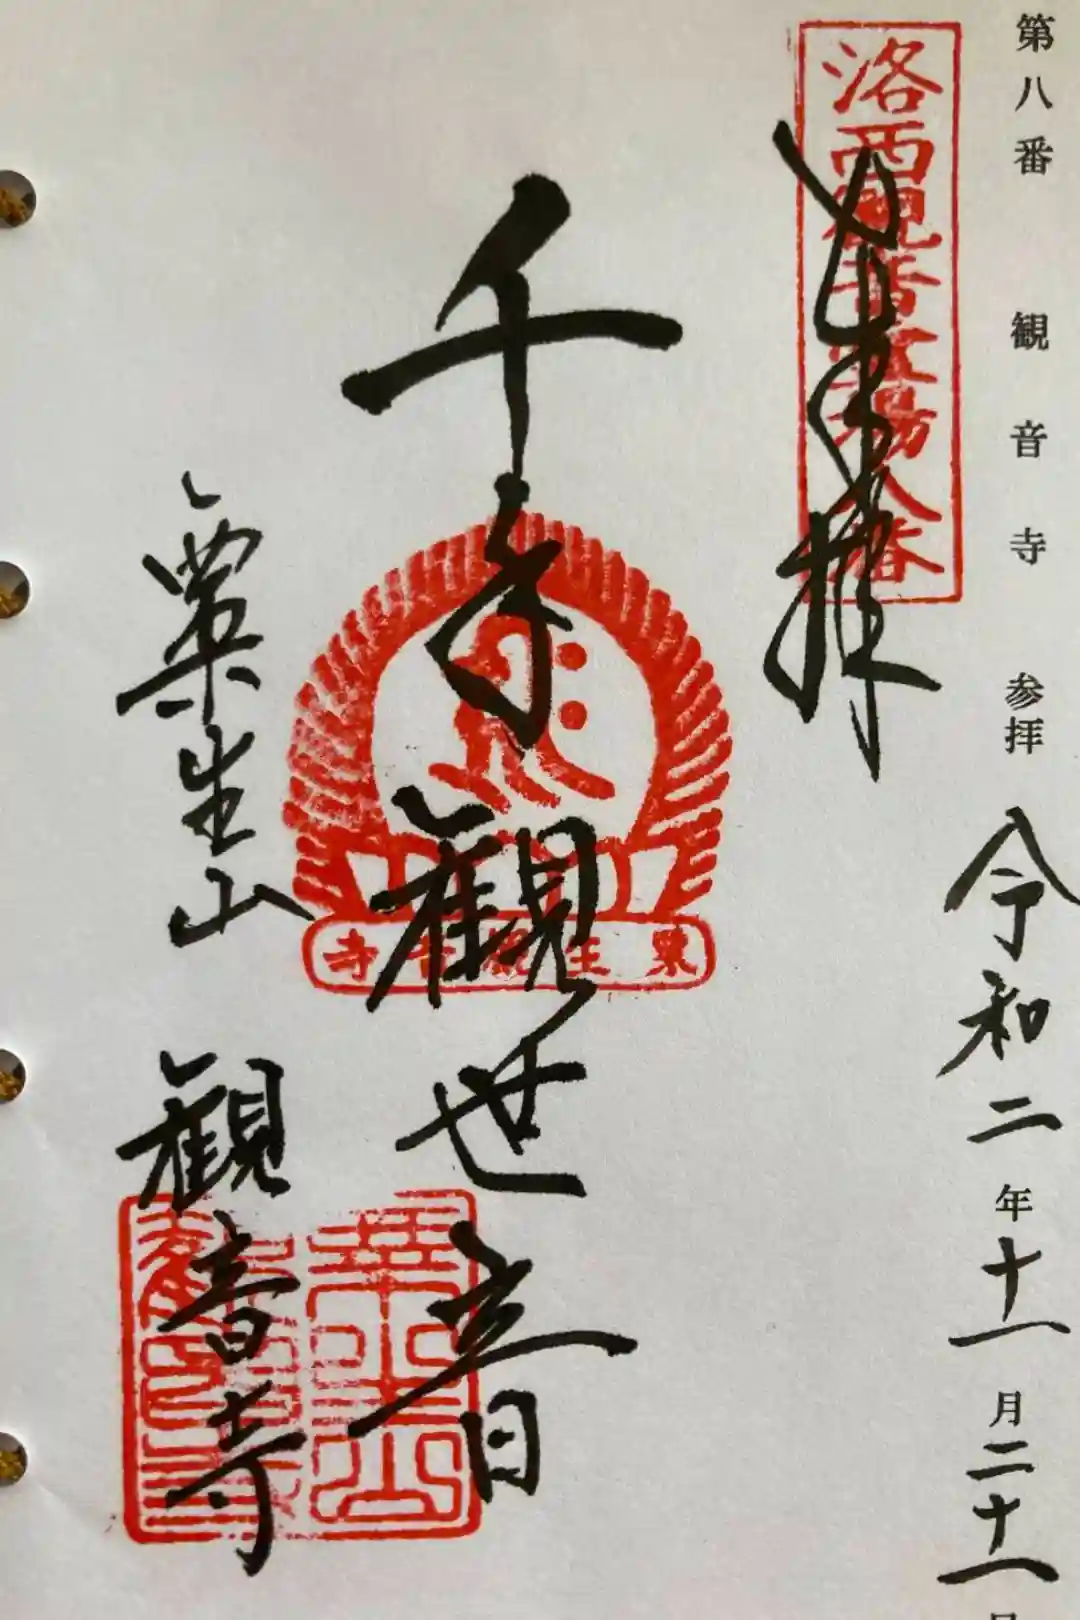 第八番 観音寺 参拝 令和二年十一月二十一日
洛西観音霊場八番
奉拝
千手観世音
粟生観音寺
粟生山 観音寺